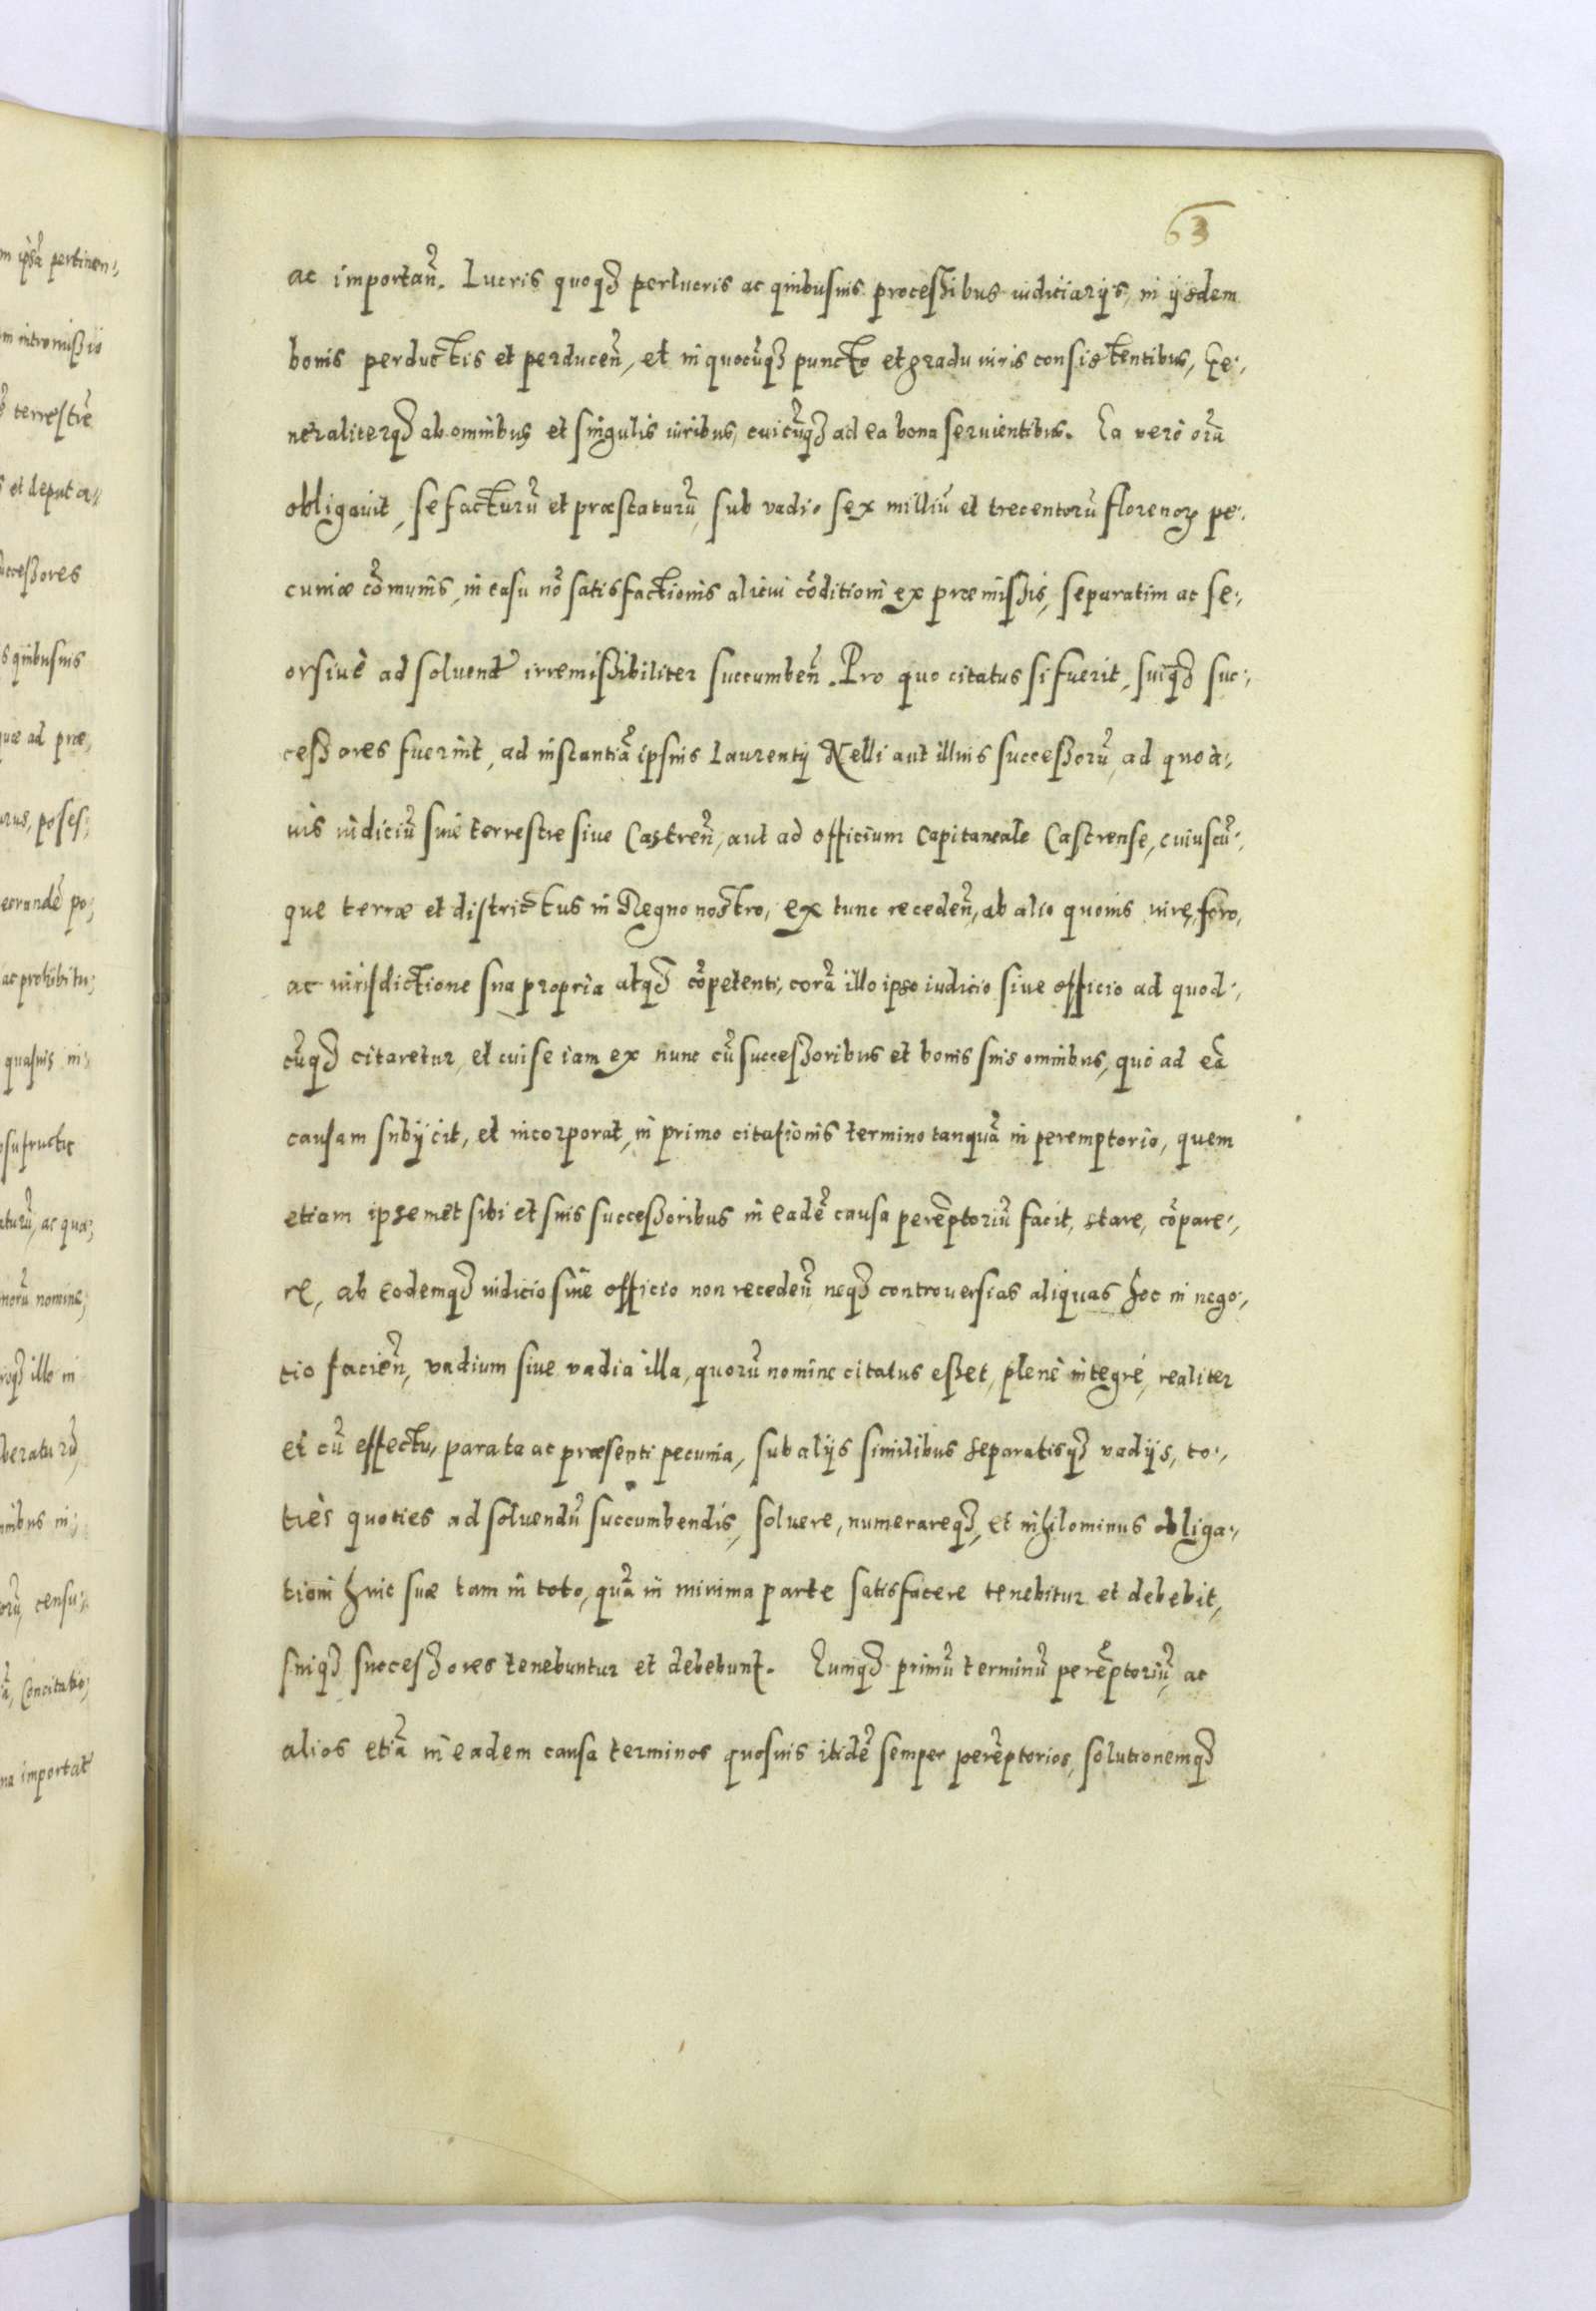 63
ac importañ. Lucris quoqꝫ perlucris ac quibusuis processibus iudiciarijs, in ijsdem
bonis perductis et perduceñ, et in quocũqꝫ puncto et gradu iuris consistentibus, Ge-
neraliterqꝫ ab omnibus et singulis iuribus, cuicũqꝫ ad ea bona seruientibus. Ea verò oĩa
obligauit, se facturũ et præstaturũ, sub vadio sex milliũ et trecentorũ florenoꝝ pe-
cuniæ cõmunis, in casu nõ satisfactionis alicui cõditioni ex præmissis, separatim ac se-
orsiuè ad soluend̃ irremissibiliter succumbeñ. Pro quo citatus si fuerit, suiqꝫ suc-
cessores fuerint, ad instantiã ipsius Laurentij Nelli aut illius successorũ, ad quod-
uis iudiciũ siue terrestre siue Castreñ, aut ad officium Capitaneale Castrense, cuiuscũ-
que terræ et districtus in Regno nostro, ex tunc recedeñ, ab alio quouis iure, foro,
ac iurisdictione sua propria atqꝫ cõpetenti, corã illo ipso iudicio siue officio ad quod-
cũqꝫ citaretur, et cui se iam ex nunc cũ successoribus et bonis suis omnibus, quò ad eã
causam subijcit, et incorporat, in primo citationis termino tanquã in peremptorio, quem
etiam ipsemet sibi et suis successoribus in eadẽ causa perẽptoriũ facit, stare, cõpare-
re, ab eodemqꝫ iudicio siue officio non recedeñ neqꝫ controuersias aliquas hoc in nego-
tio facieñ, vadium siue vadia illa, quorũ nomine citatus esset, plenè integrè, realiter
et cũ effectu, parata ac præsenti pecunia, sub alijs similibus separatisqꝫ vadijs, to-
ties quoties ad soluendũ succumbendis, soluere, numerareqꝫ, et nihilominus obliga-
tioni huic suæ tam in toto, quã in minima parte satisfacere tenebitur et debebit,
suiqꝫ successores tenebuntur et debebunt. Eumqꝫ primũ terminũ perẽptoriũ, ac
alios etiã in eadem causa terminos quosuis itidẽ semper perẽptorios, solutionemqꝫ